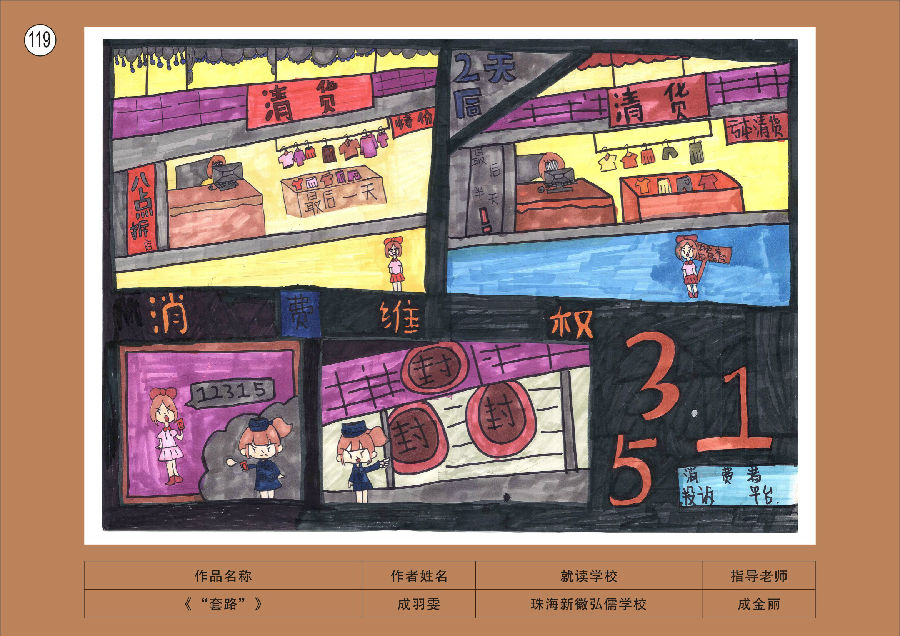 119
清货
特价
八点折
最后一天
2天后
清货
亏本清货
最后
半天
消费维权
12315
封
封
封
3.15
消费者
投诉平台
作品名称 作者姓名 就读学校 指导老师
《“套路”》 成羽雯 珠海新徽弘儒学校 成金丽